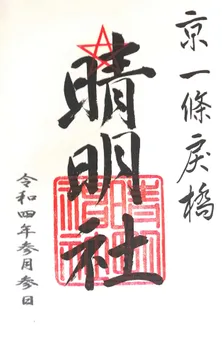 京一條戻橋
晴明社
令和四年参月参日